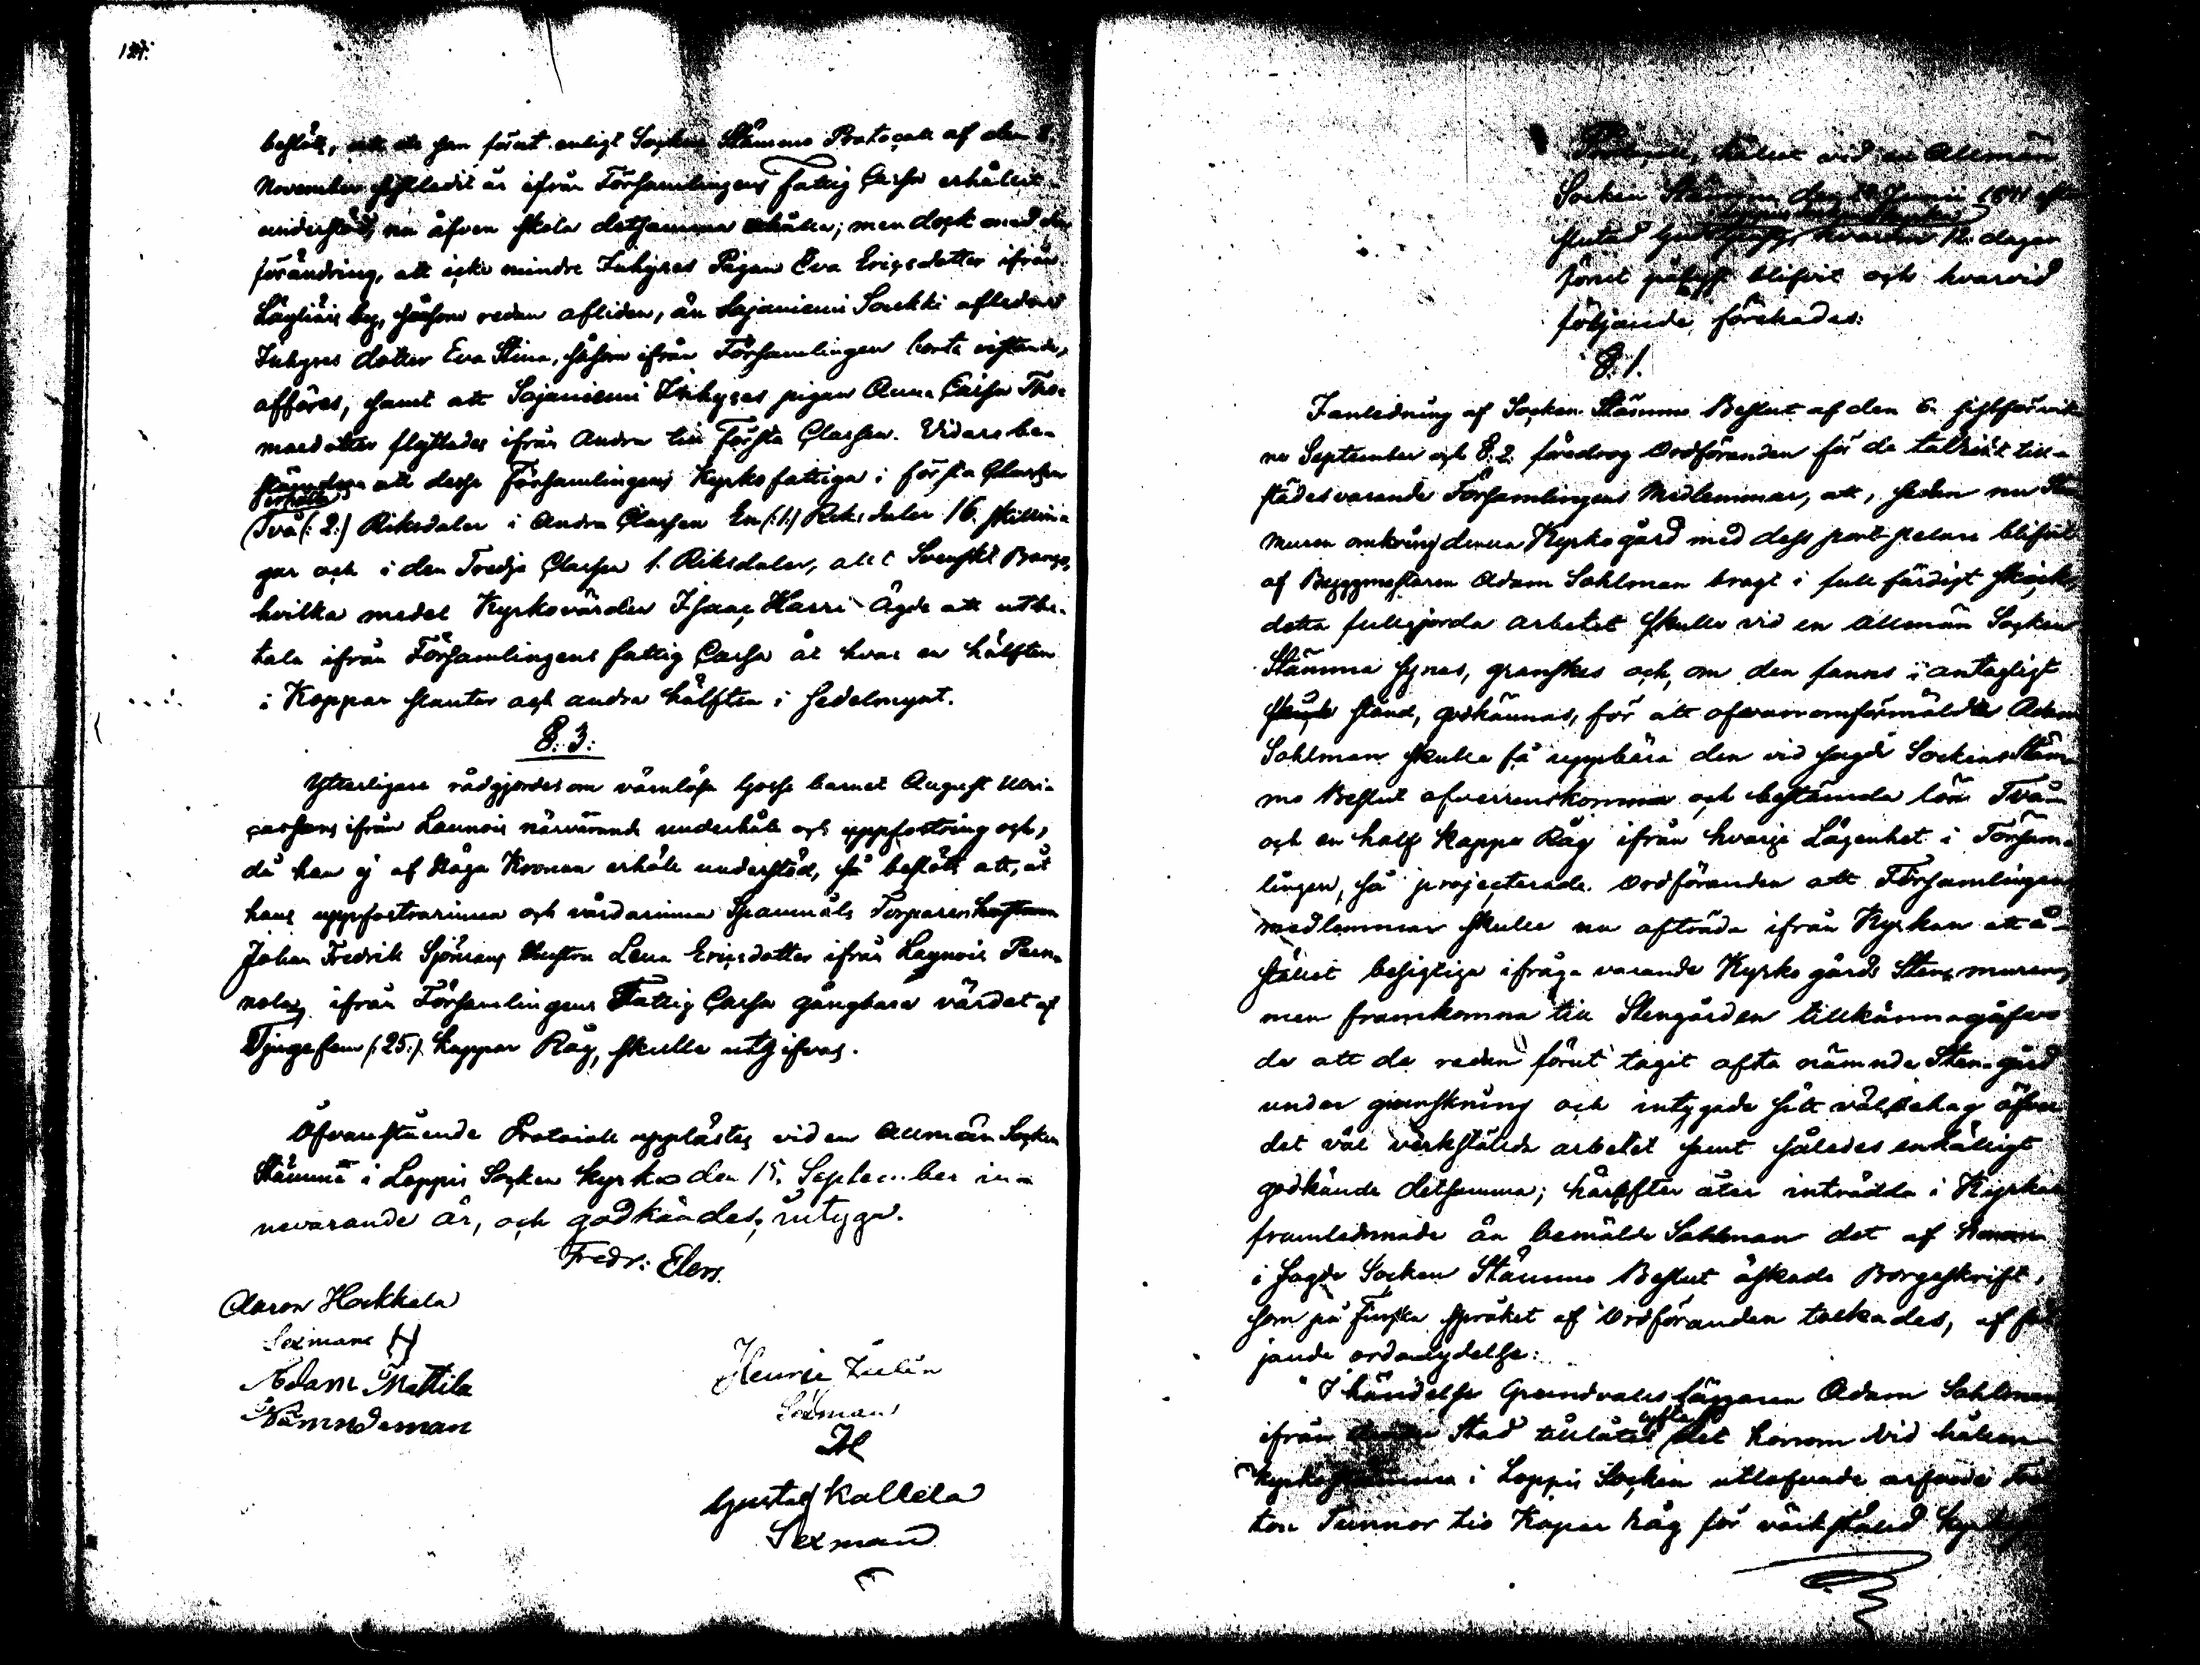 124:
beslöts, att de som förut enligt Socken Stämmo Protocoll af den 8.
November sistledit år ifrån Församlingens Fattig Cassa erhållit
understöd, nu äfven skola detsamma erhålla; men dock med den
förändring, att icke mindre Inhyses Pigan Eva Ericsdotter ifrån
Läyliäis by, såsom redan afliden, än Sajaniemi Soukki afledne
Inhyses dotter Eva Stina, såsom ifrån Församlingen borta vistande,
afföres, samt att Sajaniemi Inhyses pigan Anna Caisa Tho-
masdotter flyttades ifrån Andra till Första Classen. Vidare be-
stämdes att dessa Församlingens Kyrkofattiga i första Classen
erhålla
Två (: 2:) Riksdaler i Andra Classen En (: 1:) Riksdaler 16 skillin-
gar och i den Tredje Classen 1. Riksdaler, allt Svenskt Banco,
hvilka medel Kyrkovärden Isaac Harri ägde att utbe-
tala ifrån Församlingens fattig Cassa åt hvar en hälften
i Koppar slantar och andra hälften i Sedelmynt.
§. 3:
Ytterligare rådgjordes om värnlösa gosse barnet August Ulri-
cassons ifrån Launois närvarande underhåll och uppfostring och,
då han ej af Höga Kronan erhåll understöd, så beslöts att, åt
hans uppfostrarinna och vårdarinna Spannåls Torparen
Johan Fredrik Sjömans Hustru Lena Ericsdotter ifrån Laynois Per-
nola, ifrån Församlingens Fattig Cassa gångbara värdet af
Tjugefem (: 25:) kappar Råg, skulle utgifvas.
Ofvanstående Protocoll upplästes vid en Allmän Socken
Stämma i Loppis Socken kyrka den 15. September in-
nevarande år, och godkändes, intyga.
Fredr: Elers.
Aaron Hokkala
Sexman
Adam Mattila
Nämndeman
Henric
Sexman
Gustaf Kallela
Sexman
Protocoll, hållit vid en Allmän
Socken Stämma den Junii 1841 efter
slutad hvarom 12. dagar
förut pålyst blifvit och hvarvid
följande förehades:
§. 1.
I anledning af Socken Stämmo Beslut af den 6. sistförvik-
ne September och §. 2. föredrog Ordföranden för de talrikt till-
städesvarande Församlingens Medlemmar, att, sedan nu Sten
muren omkring denna Kyrkogård med dess port pelare blifvit
af Byggmästaren Adam Sahlman bragt i full färdigt skick,
detta fullgjorda arbetet skulle vid en Allmän Socken
Stämma synas, granskas och, om den fanns i antagligt
stånd, godkännas, för att ofvanomförmälde Adam
Sahlman skulle få uppbära den vid sagde Sockens Stäm-
mo Beslut öfverrenskomna och bestämda lön Två
och en half kappa Råg ifrån hvarje Lägenhet i Försam-
lingen, så projecterade Ordföranden att Församlingens
medlemmar skulle nu afträda ifrån Kyrkan att å
stället besigtiga ifråga varande Kyrko gårds Sten muren,
men framkomna till Stengården tillkännagåfvo
de att de redan förut tagit ofta nämnde Sten gård
under granskning och intygade sitt välbehag öfver
det väl verkstälde arbetet samt således enhälligt
godkände detsamma; härefter åter inträdde i Kyrkan
framlemnade än bemälde Sahlman det af honom
i sagde Socken Stämmo Beslut äskade Borgeskrift,
som på Finska språket af Ordföranden tolkades, af föl-
jande ordalydelse:
"I händelse Grundvals läggaren Adam Sahlman
ifrån Stad tillåtes lyfta det honom vid hållen
Kyrkostämma i Loppis Socken utlofvade arfvode
ton Tunnor tio Kapar råg för värkstäld